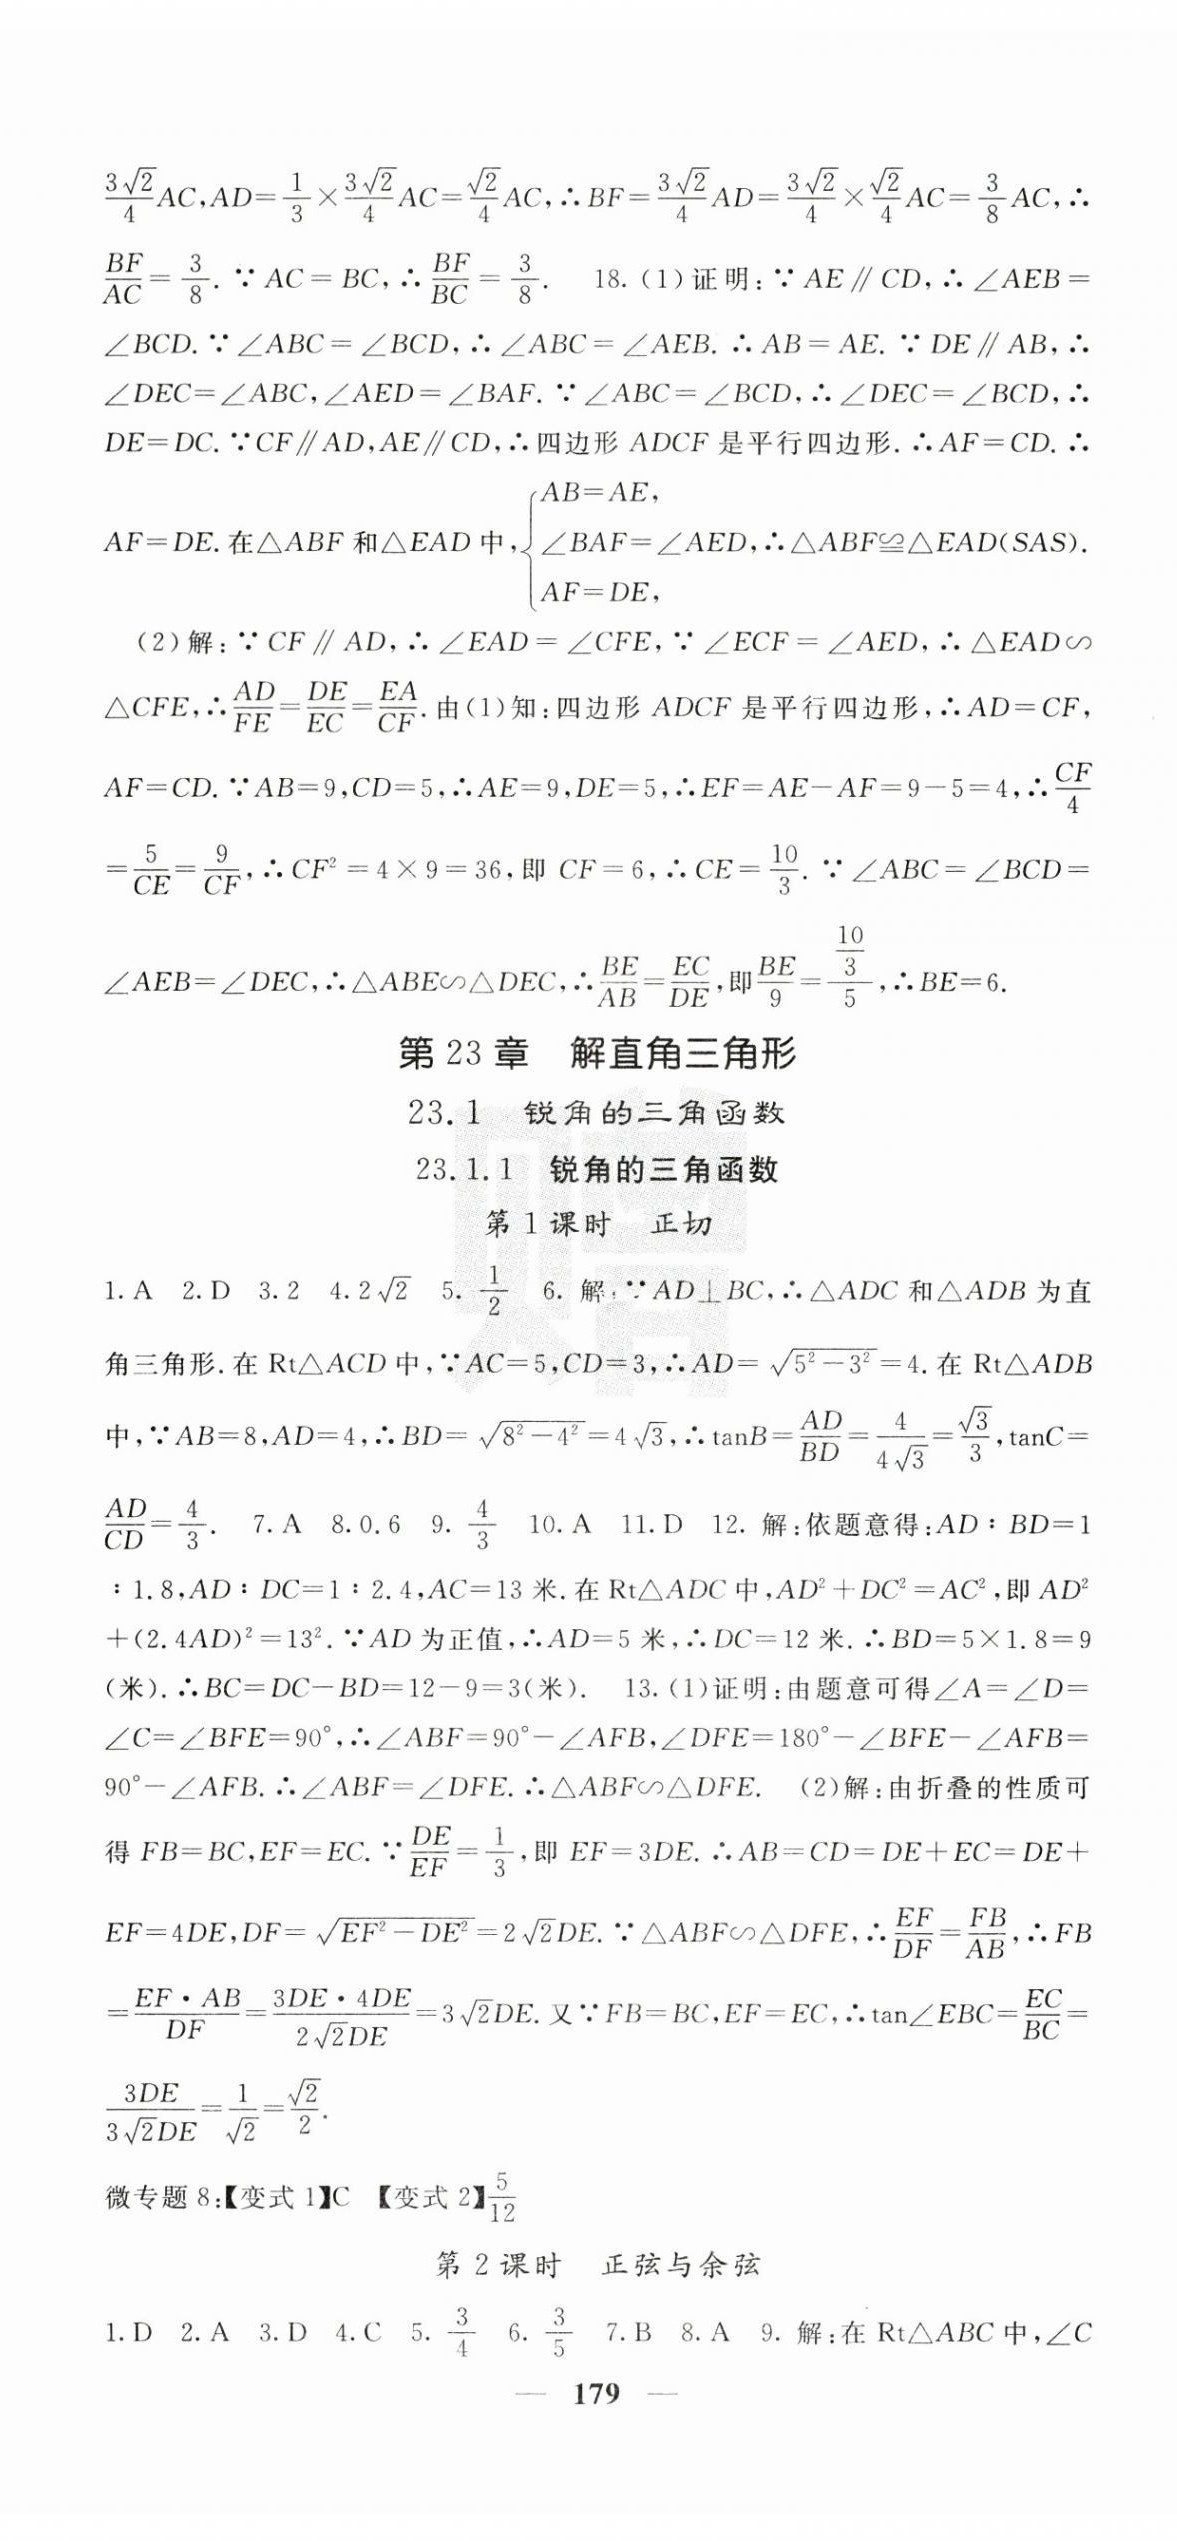 3√2/4 AC,AD=1/3×3√2/4 AC=√2/4 AC,∴BF=3√2/4 AD=3√2/4×√2/4 AC=3/8 AC,∴
BF/AC=3/8.∵AC=BC,∴BF/BC=3/8. 18.(1)证明:∵AE∥CD,∴∠AEB=
∠BCD.∵∠ABC=∠BCD,∴∠ABC=∠AEB.∴AB=AE.∵DE∥AB,∴
∠DEC=∠ABC,∠AED=∠BAF.∵∠ABC=∠BCD,∴∠DEC=∠BCD,∴
DE=DC.∵CF∥AD,AE∥CD,∴四边形 ADCF 是平行四边形.∴AF=CD.∴
AF=DE.在△ABF 和△EAD 中,{AB=AE,
∠BAF=∠AED,∴△ABF≌△EAD(SAS).
AF=DE,
(2)解:∵CF∥AD,∴∠EAD=∠CFE,∵∠ECF=∠AED,∴△EAD∽
△CFE,∴AD/FE=DE/EC=EA/CF.由(1)知:四边形 ADCF 是平行四边形,∴AD=CF,
AF=CD.∵AB=9,CD=5,∴AE=9,DE=5,∴EF=AE-AF=9-5=4,∴CF/4
=5/CE=9/CF,∴CF²=4×9=36,即 CF=6,∴CE=10/3.∵∠ABC=∠BCD=
∠AEB=∠DEC,∴△ABE∽△DEC,∴BE/AB=EC/DE,即BE/9=(10/3)/5,∴BE=6.
第 23 章 解直角三角形
23.1 锐角的三角函数
23.1.1 锐角的三角函数
第 1 课时 正切
1.A 2.D 3.2 4.2√2 5.1/2 6.解:∵AD⊥BC,∴△ADC 和△ADB 为直
角三角形.在 Rt△ACD 中,∵AC=5,CD=3,∴AD=√(5²-3²)=4.在 Rt△ADB
中,∵AB=8,AD=4,∴BD=√(8²-4²)=4√3,∴tanB=AD/BD=4/(4√3)=√3/3,tanC=
AD/CD=4/3. 7.A 8.0.6 9.4/3 10.A 11.D 12.解:依题意得:AD∶BD=1
∶1.8,AD∶DC=1∶2.4,AC=13 米.在 Rt△ADC 中,AD²+DC²=AC²,即 AD²
+(2.4AD)²=13².∵AD 为正值,∴AD=5 米,∴DC=12 米.∴BD=5×1.8=9
(米).∴BC=DC-BD=12-9=3(米). 13.(1)证明:由题意可得∠A=∠D=
∠C=∠BFE=90°,∴∠ABF=90°-∠AFB,∠DFE=180°-∠BFE-∠AFB=
90°-∠AFB.∴∠ABF=∠DFE.∴△ABF∽△DFE. (2)解:由折叠的性质可
得 FB=BC,EF=EC.∵DE/EF=1/3,即 EF=3DE.∴AB=CD=DE+EC=DE+
EF=4DE,DF=√(EF²-DE²)=2√2DE.∵△ABF∽△DFE,∴EF/DF=FB/AB,∴FB
=EF·AB/DF=3DE·4DE/(2√2DE)=3√2DE.又∵FB=BC,EF=EC,∴tan∠EBC=EC/BC=
3DE/(3√2DE)=1/√2=√2/2.
微专题 8:【变式 1】C 【变式 2】5/12
第 2 课时 正弦与余弦
1.D 2.A 3.D 4.C 5.3/4 6.3/5 7.B 8.A 9.解:在 Rt△ABC 中,∠C
— 179 —